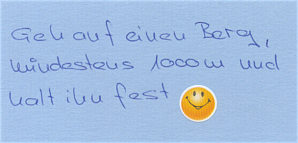 Geh auf einen Berg,
mindestens 1000m und
halt ihn fest